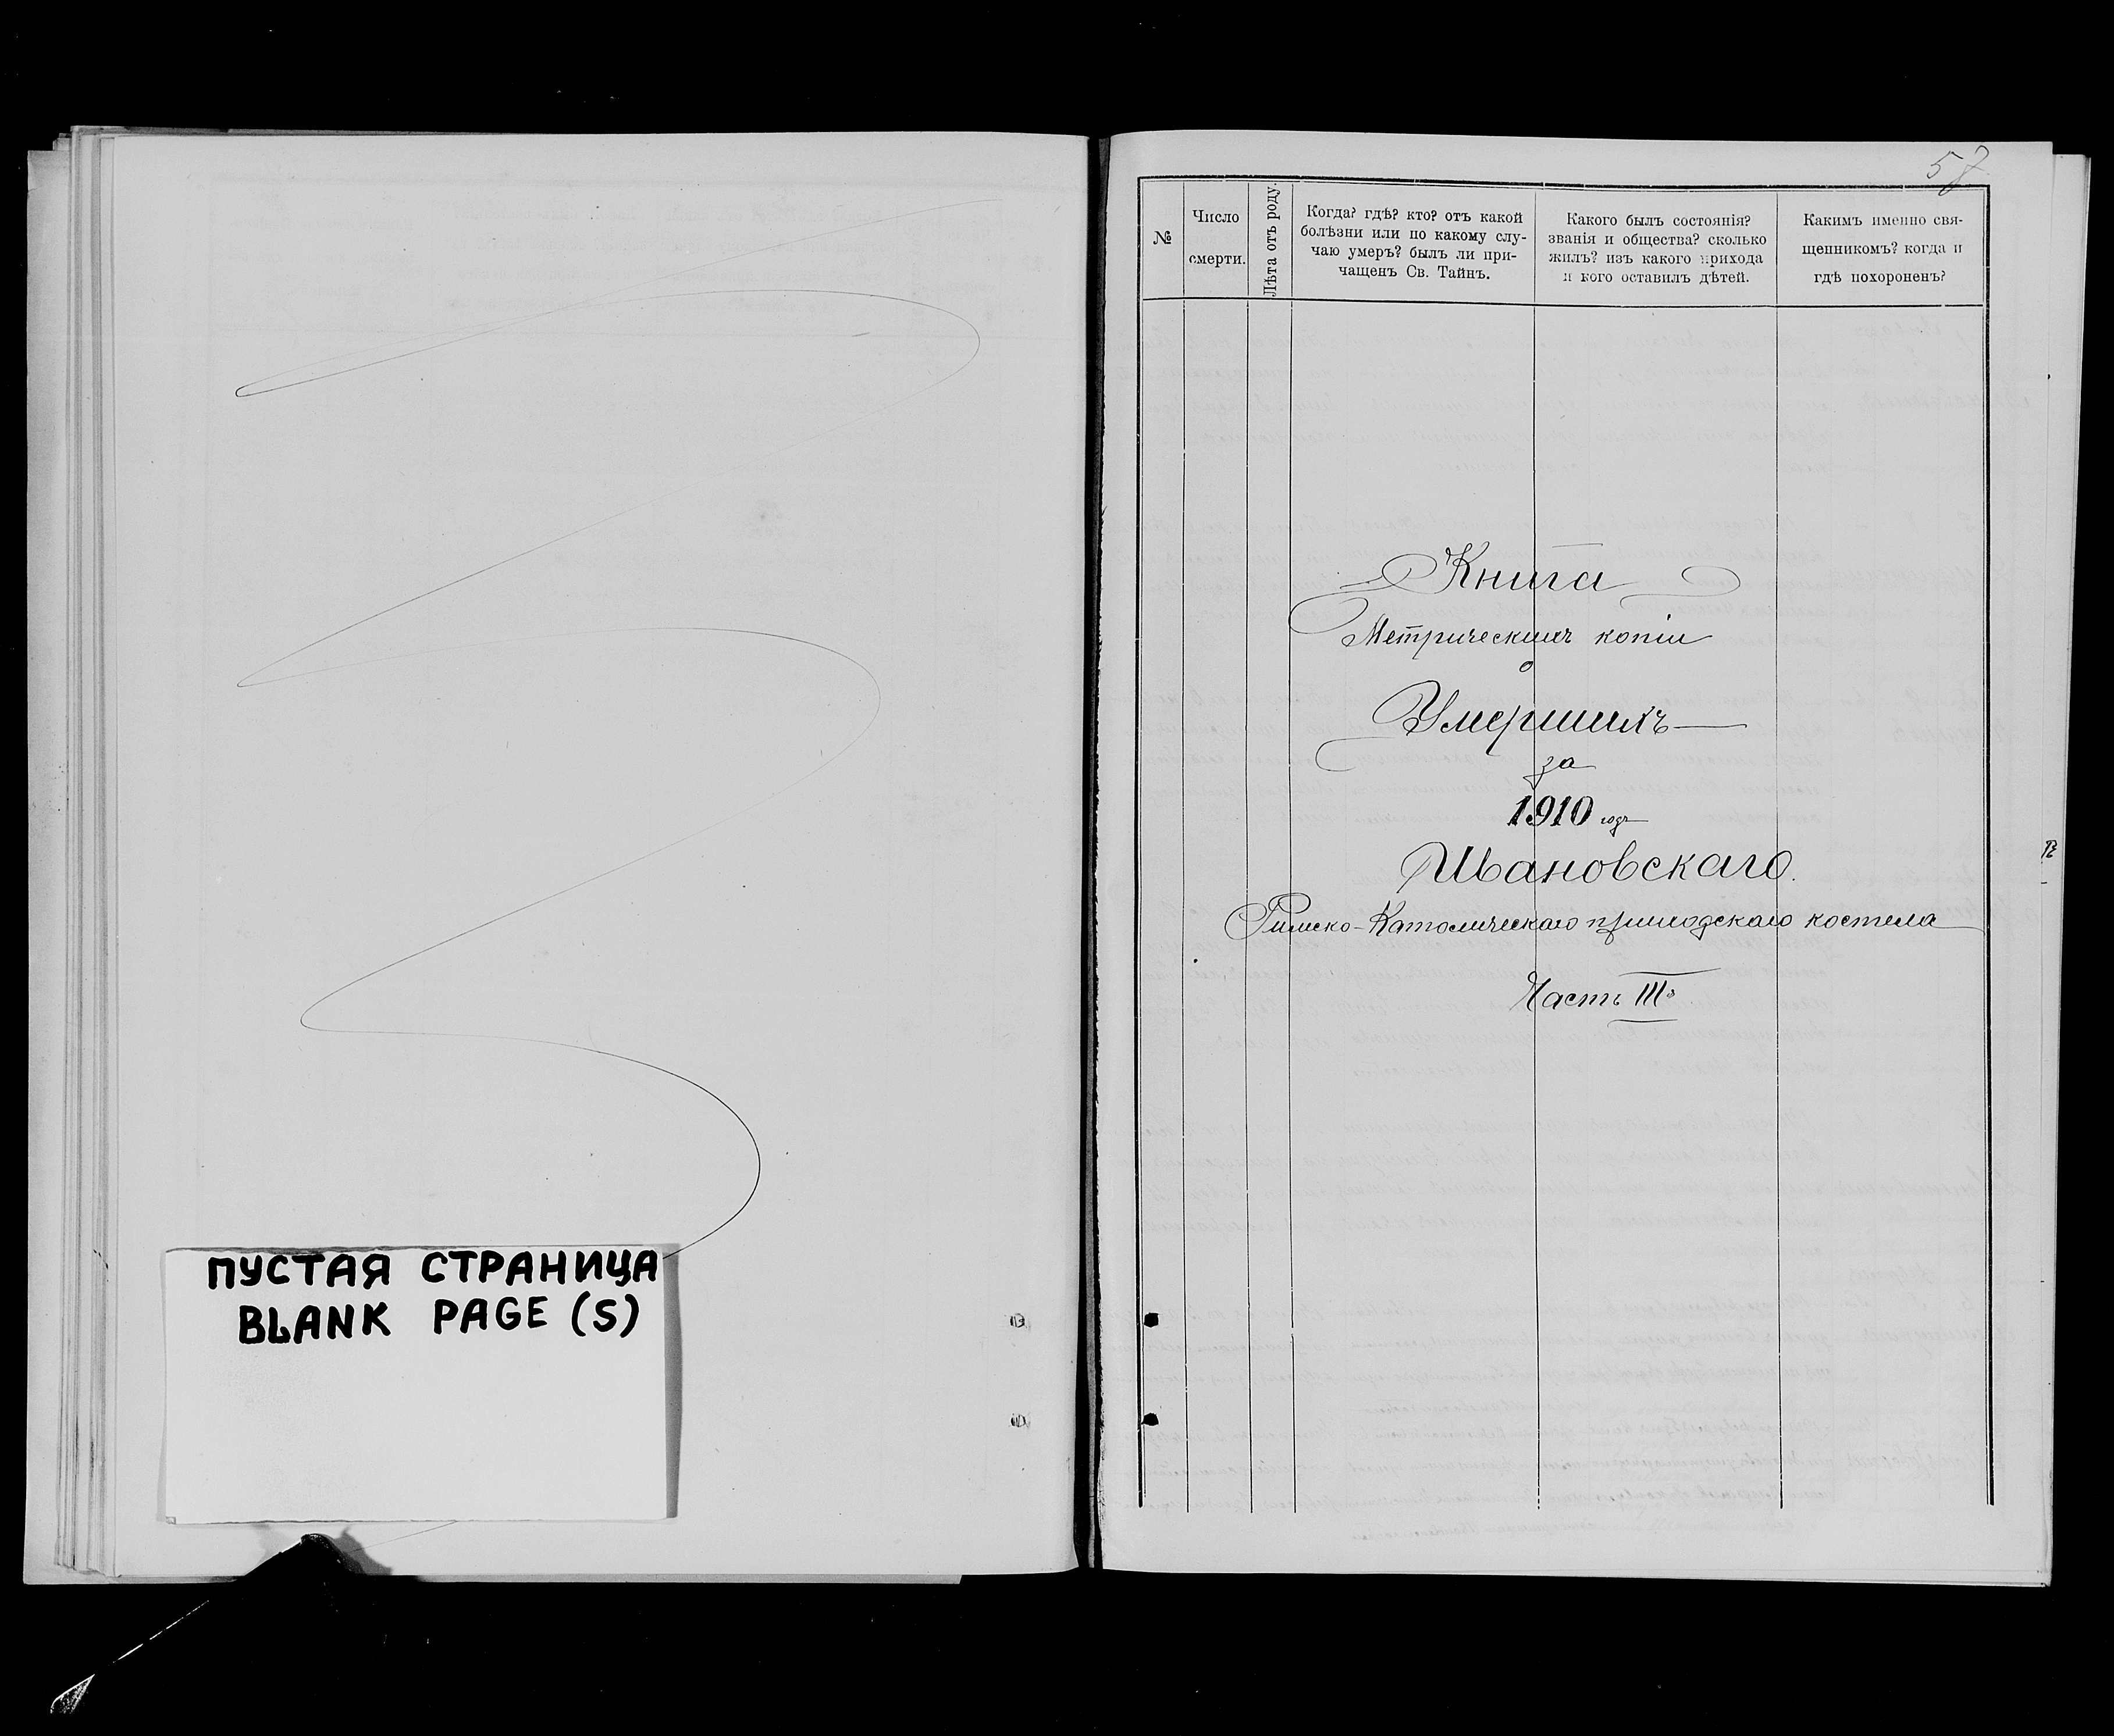 ПУСТАЯ СТРАНИЦА
BLANK PAGE (S)
№
Число
смерти.
Лѣта отъ роду.
Когда? гдѣ? кто? отъ какой
болѣзни или по какому слу-
чаю умеръ? былъ ли при-
чащенъ Св. Тайнъ.
Какого былъ состоянія?
званія и общества? сколько
жилъ? изъ какого прихода
и кого оставилъ дѣтей.
Какимъ именно свя-
щенникомъ? когда и
гдѣ похороненъ?
Книга
Метрическихъ копіи
о
Умершихъ
за
1910 годъ
Ивановскаго.
Римско-Католическаго приходскаго костела
Часть III